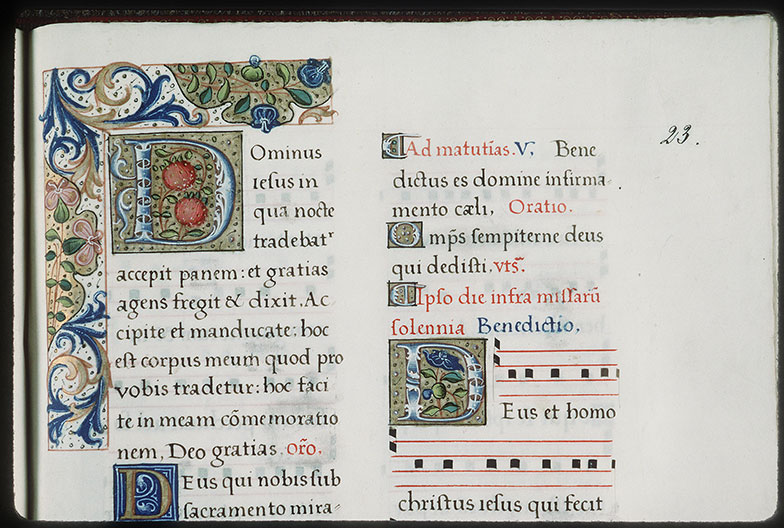 Dominus
iesus in
qua nocte
tradebatʳ
accepit panem: et gratias
agens fregit & dixit. Ac
cipite et manducate: hoc
est corpus meum quod pro
vobis tradetur: hoc faci
te in meam cōmemoratio
nem. Deo gratias. Orõ.
Deus qui nobis sub
sacramento mira-
Ad matutīas. V. Bene
dictus es domine in firma
mento cæli, Oratio.
Omp̄s sempiterne deus
qui dedisti. vts̄.
Ipso die infra missarū
solennia Benedictio.
Deus et homo
christus iesus qui fecit
23.